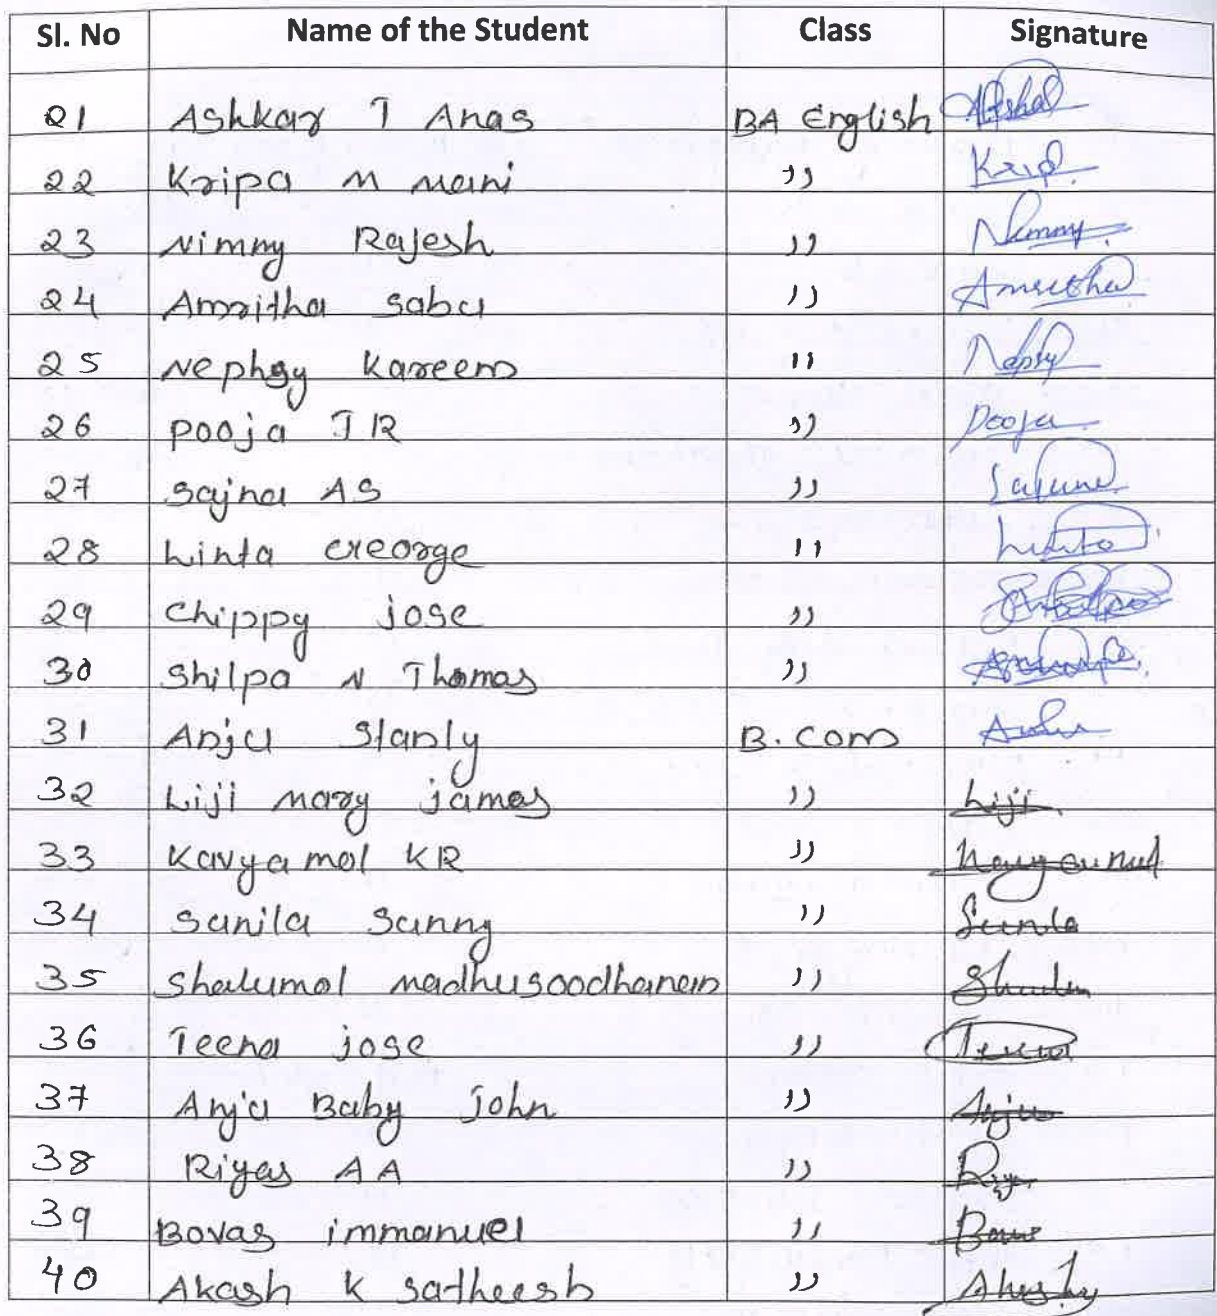 Sl. No Name of the Student Class Signature
21 Ashkar T Anas BA English
22 Kripa M Mani " Krip
23 Nimmy Rajesh " Nimmy
24 Amritha Sabu " Amritha
25 Nephsy Kareem "
26 Pooja TR " Pooja
27 Sajna AS "
28 Linta George "
29 Chippy Jose "
30 Shilpa N Thomas "
31 Anju Stanly B.Com
32 Liji Mary James " Liji
33 Kavyamol KR "
34 Sanila Sanny "
35 Shalumol Madhusoodhanan "
36 Teena Jose "
37 Anju Baby John " Anju
38 Riyas AA "
39 Bovas Immanuel "
40 Akash K Satheesh "